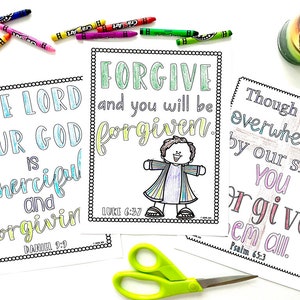 E LORD
UR GOD
is
merciful
and
forgiving
DANIEL 9:9
FORGIVE
and you will be
forgiven.
LUKE 6:37
Though
overwhelm
by our s
YOU
forgive
them all.
Psalm 65:3